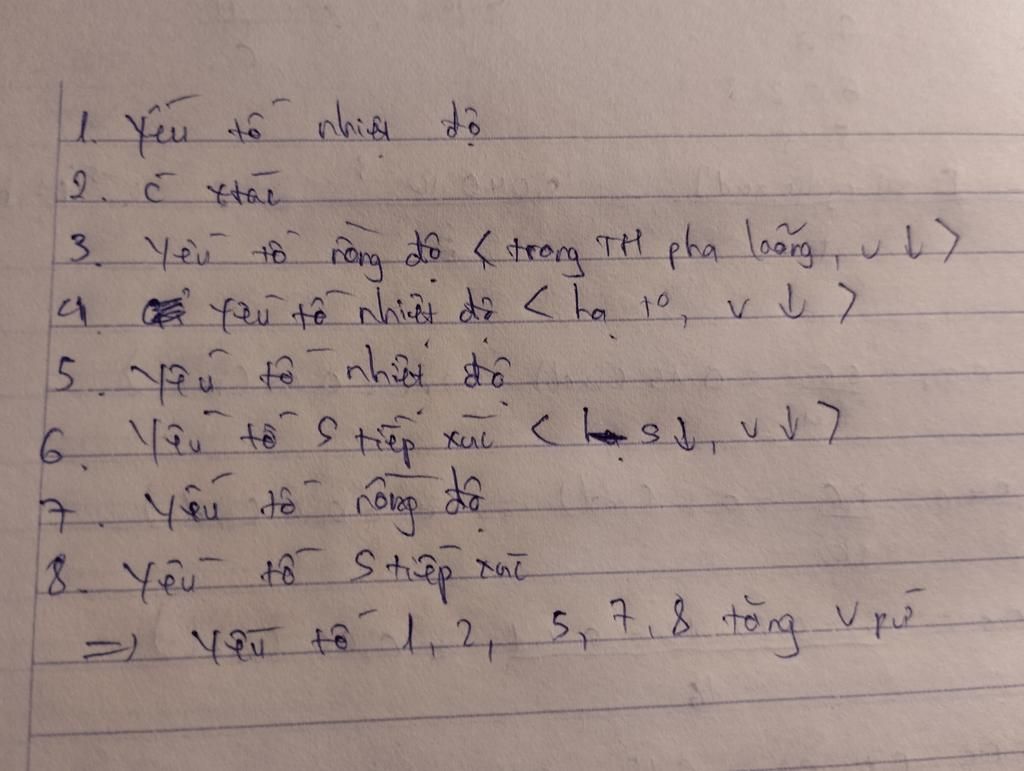 1. Yếu tố nhiệt độ
2. C xtác
3. Yếu tố nồng độ < trong TH pha loãng, v ↓ >
4. Yếu tố nhiệt độ < hạ t°, v ↓ >
5. Yếu tố nhiệt độ
6. Yếu tố S tiếp xúc < S↓, v ↓ >
7. Yếu tố nồng độ
8. Yếu tố S tiếp xúc
=> Yếu tố 1, 2, 5, 7, 8 tăng v pứ